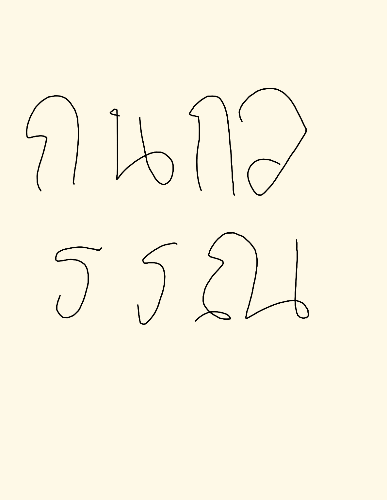 กนกว
รรณ